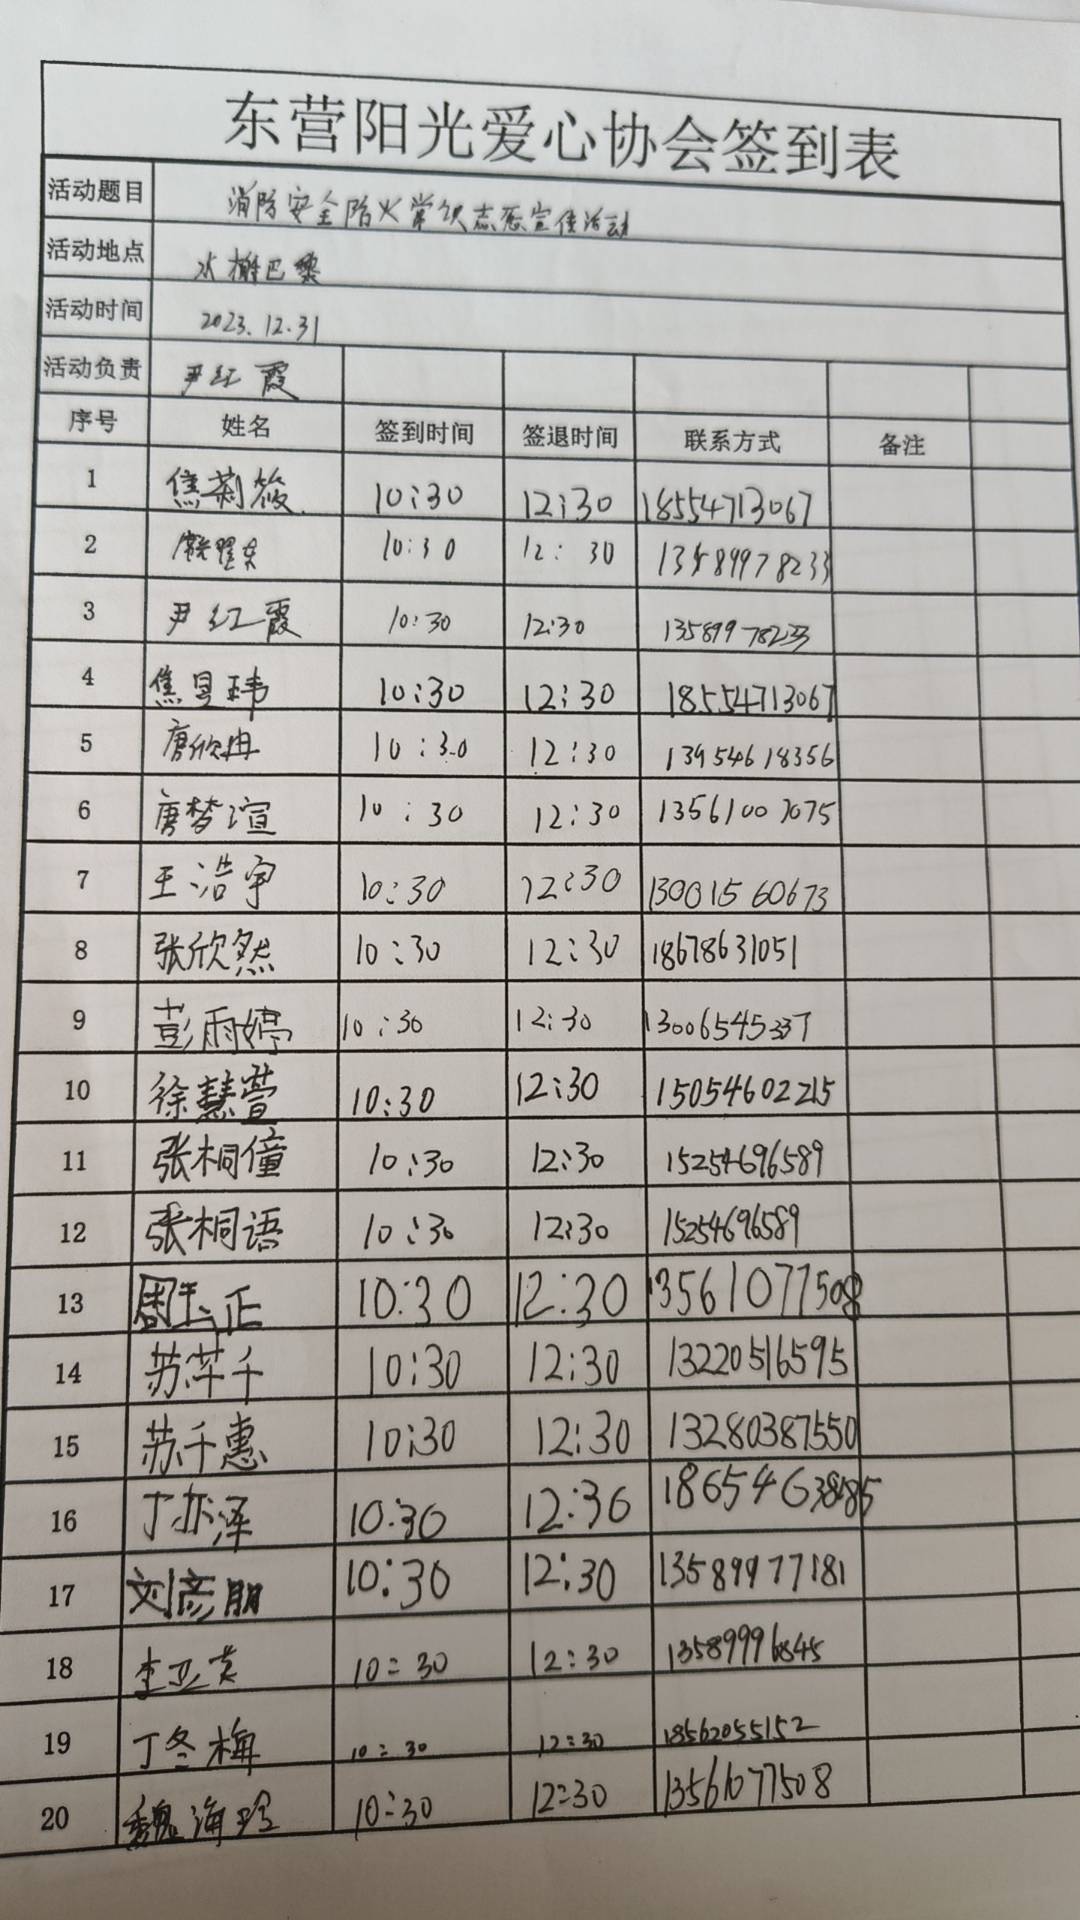 东营阳光爱心协会签到表
活动题目 消防安全防火常识志愿宣传活动
活动地点 水榭巴黎
活动时间 2023.12.31
活动负责 尹红霞
序号 姓名 签到时间 签退时间 联系方式 备注
1 焦莉筱 10:30 12:30 18554713067
2 10:30 12:30 13589978233
3 尹红霞 10:30 12:30 13589978233
4 焦昱玮 10:30 12:30 18554713067
5 唐欣冉 10:30 12:30 13954618356
6 唐梦渲 10:30 12:30 13561007075
7 王浩宇 10:30 12:30 13001560673
8 张欣然 10:30 12:30 18678631051
9 彭雨婷 10:30 12:30 13006545337
10 徐慧萱 10:30 12:30 15054602215
11 张桐僮 10:30 12:30 15254696589
12 张桐语 10:30 12:30 15254696589
13 周玉正 10:30 12:30 13561077508
14 苏芊千 10:30 12:30 13220516595
15 苏千惠 10:30 12:30 13280387550
16 丁亦泽 10:30 12:30
17 刘彦朋 10:30 12:30 13589977181
18 李亚芙 10:30 12:30 13589996845
19 丁冬梅 10:30 12:30 18562055152
20 魏海玲 10:30 12:30 13561077508